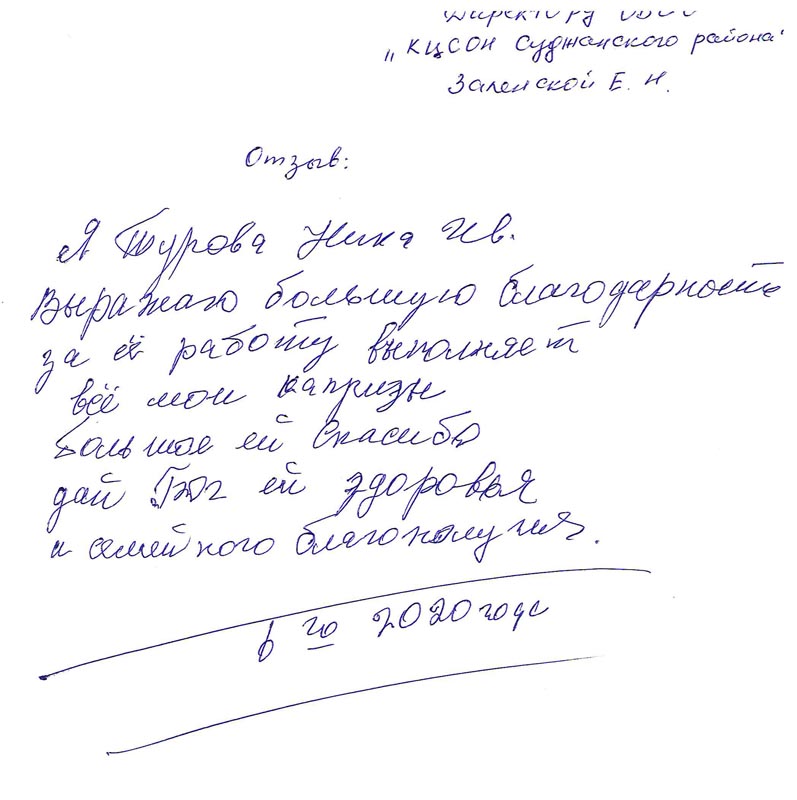 Директору ОБУСО
„КЦСОН Суджанского района"
Заленской Е. Н.
Отзыв:
Я Турова Нина Ив.
выражаю большую благодарность
за её работу выполняет
всё мои капризы
большое ей Спасибо
дай Бог ей здоровья
и семейного благополучия.
2020 года